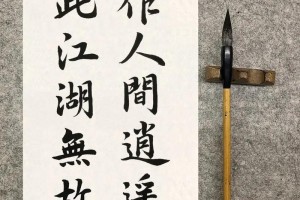 作人間逍遥
此江湖無故